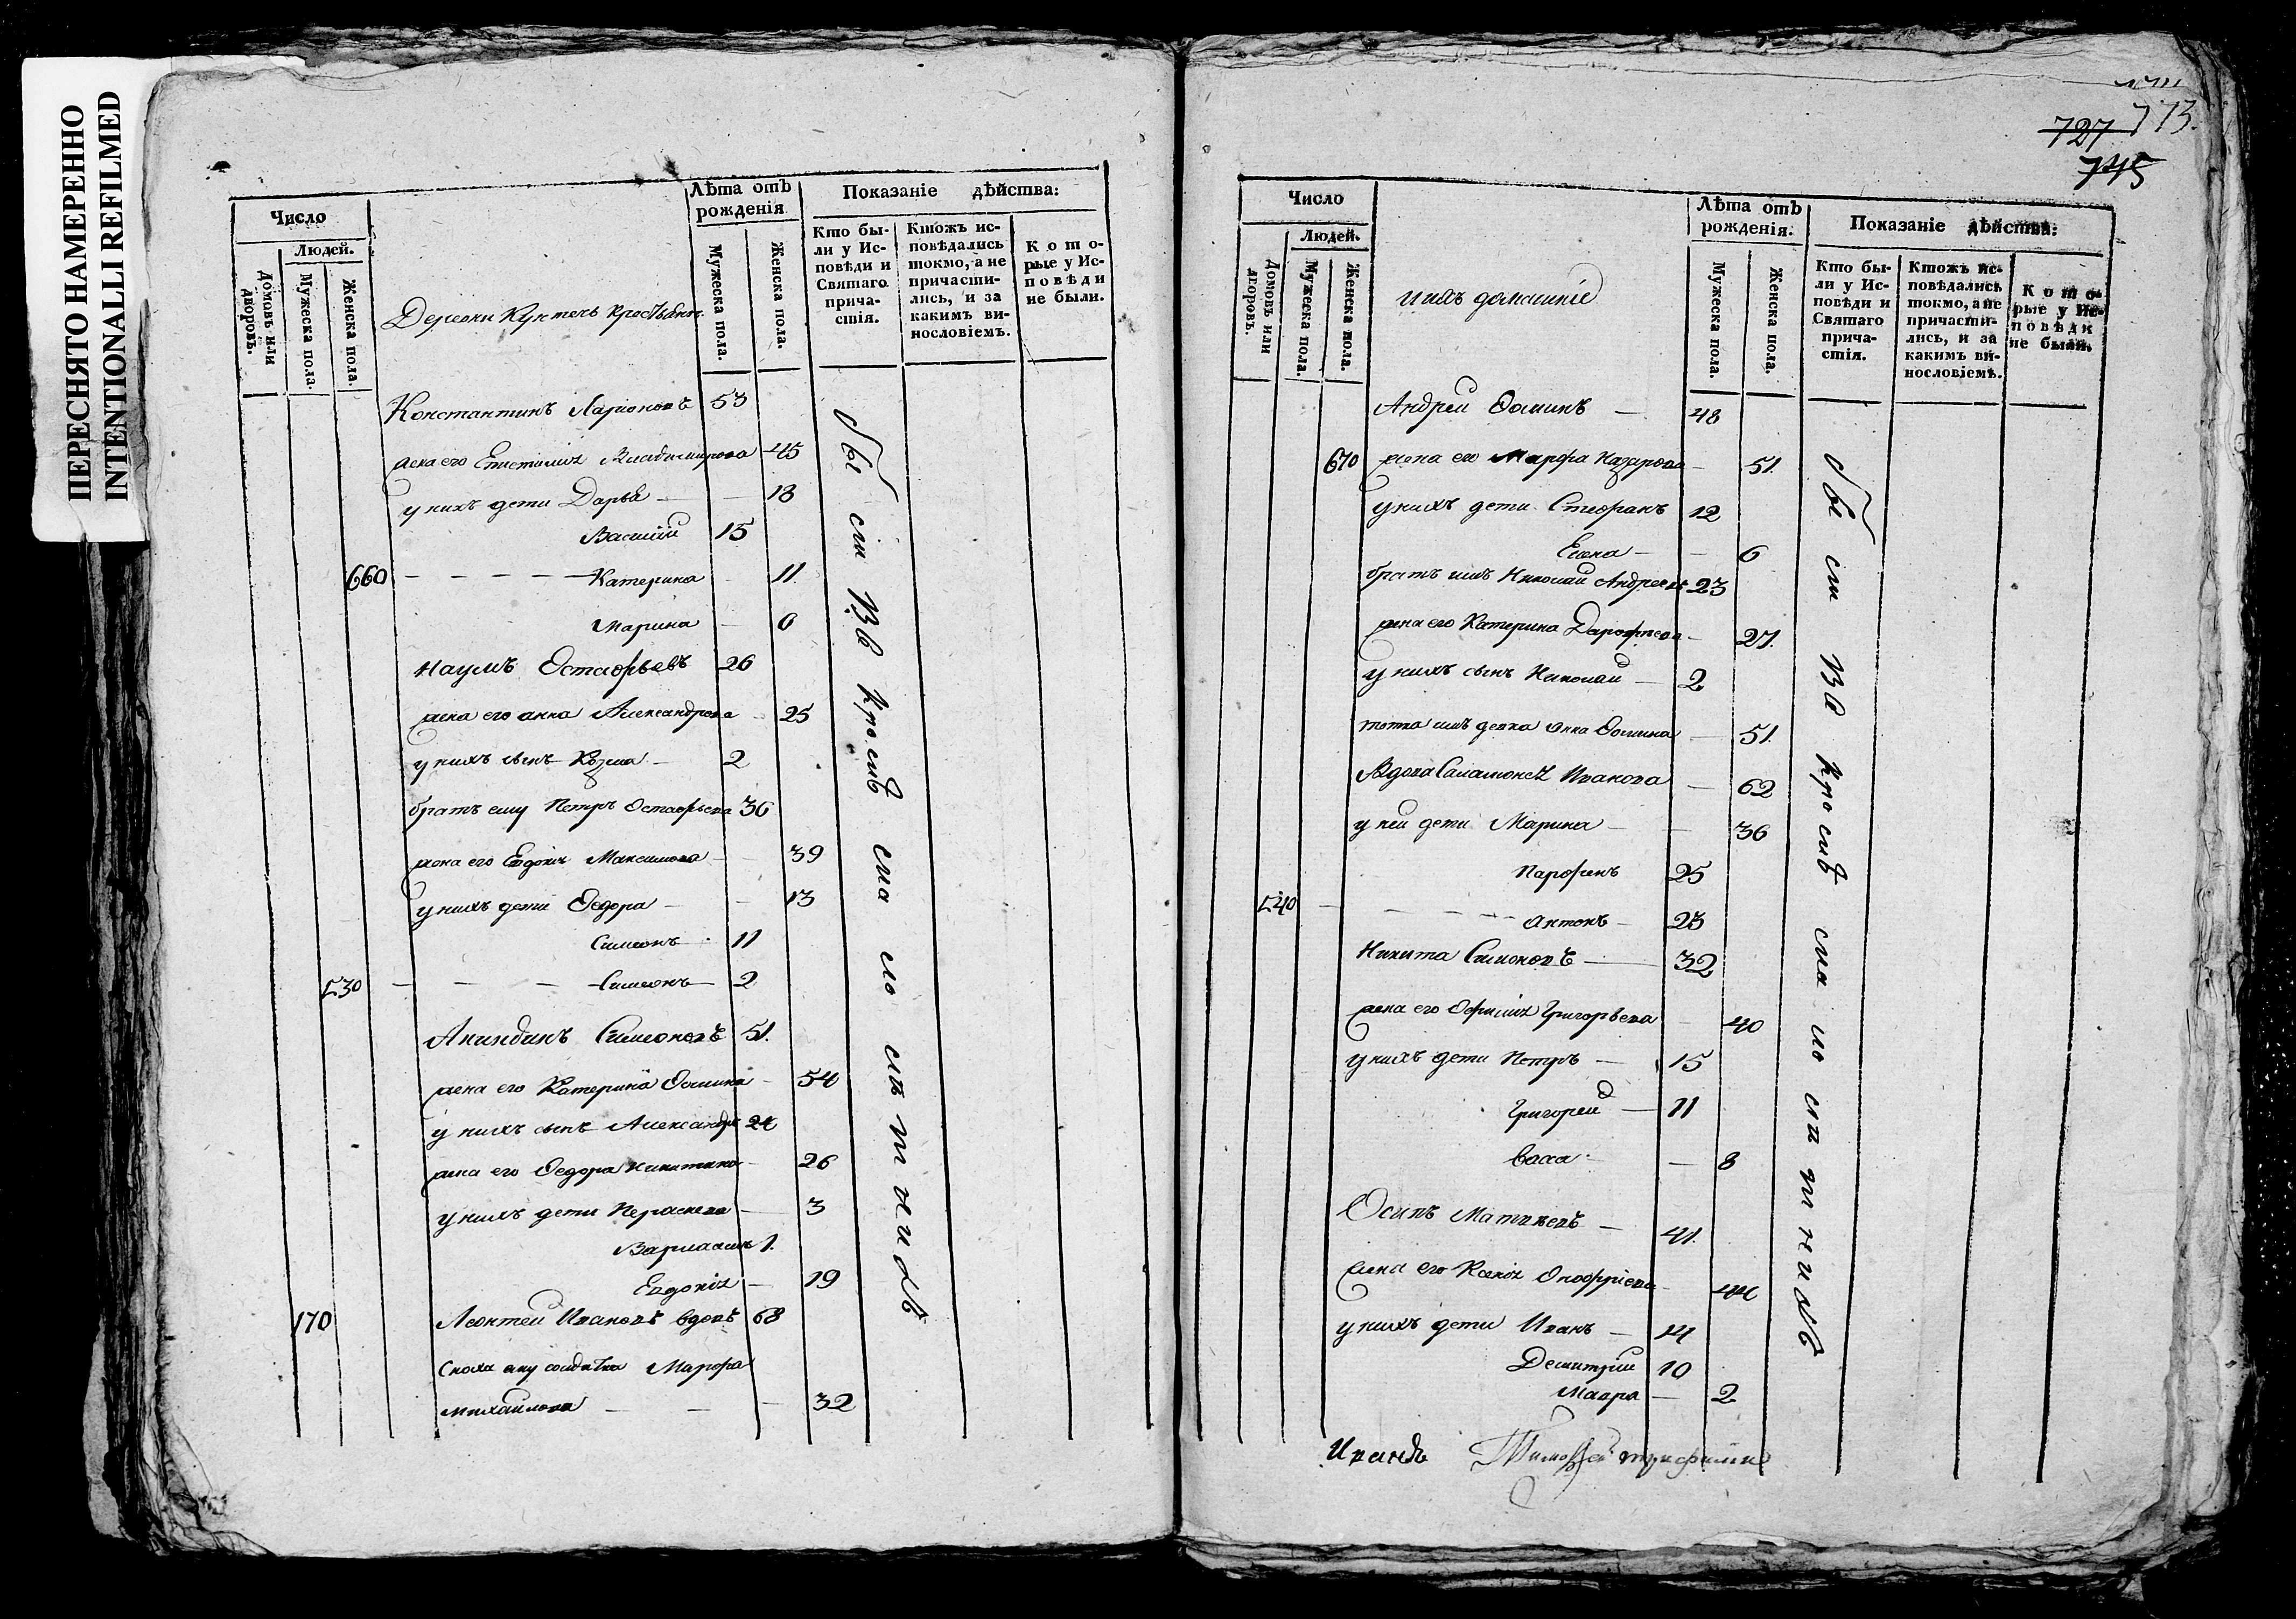 ПЕРЕСНЯТО НАМЕРЕННО
INTENTIONALLI REFILMED
Число
Людей.
Домовъ или дворовъ.
Мужеска пола.
Женска пола.
Деревни
Лѣта отъ рожденія
Мужеска пола.
Женска пола.
Показаніе дѣйства:
Кто были у Исповѣди и Святаго причастія.
Ктожъ исповѣдались токмо, а не причастились, и за какимъ винословіемъ.
Которые у Исповѣди не были.
Константинъ Ларіоновъ 53
жена его Епистимія Владимирова 45
у нихъ дети Дарья — — 18
Василій 15
660 — — — — — Катерина 11.
Марина — 6
Наумъ Остафьевъ 26
жена его анна Александрова 25
у нихъ сынъ Козма — 2
братъ ему Петръ Остафьевъ 36
жена его Евдокія Максимова — 39
у нихъ дети Ѳедора — — 13
Симеонъ 11
530 — — — Симеонъ — 2
Акиндинъ Симеоновъ 51.
жена его Катерина Ѳомина — 54
у нихъ сынъ Александръ 24
жена его Ѳедора Никитина — 26
у нихъ дети Параскева — 3
Варлаамъ 1.
Евдокія — 19
170 Леонтей Ивановъ вдовъ 68
Сноха ему солдатка Марфа
Михайлова — — — 32
727 773.
745
Число
Людей.
Домовъ или дворовъ.
Мужеска пола.
Женска пола.
и ихъ домашніе
Лѣта отъ рожденія.
Мужеска пола.
Женска пола.
Показаніе дѣйства:
Кто были у Исповѣди и Святаго причастія.
Ктожъ исповѣдались токмо, а не причастились, и за какимъ винословіемъ.
Которые у Исповѣди не были.
Андрей Ѳоминъ — 48
670 жена ево Марфа Назарова — 51.
у нихъ дети Стефанъ 12
Елена — — 6
братъ имъ Николай Андреевъ 23
жена его Катерина Дарофеева — 27.
у нихъ сынъ Николай — 2
тотка имъ девка анна Ѳомина — 51.
Вдова Саламонея Иванова — 62
у ней дети Марина — — 36
Парфенъ 25
540 — — — — Антонъ — 23
Никита Симоновъ — 32
жена его Офимія Григорьева — 40
у нихъ дети Петръ — 15
Григорей — 11
Васса — — 8
Осипъ Матвѣевъ — 41.
жена его Ксенія Онофріева — 44
у нихъ дети Иванъ — 14
Демитрій 10
Мавра — 2
Иванъ